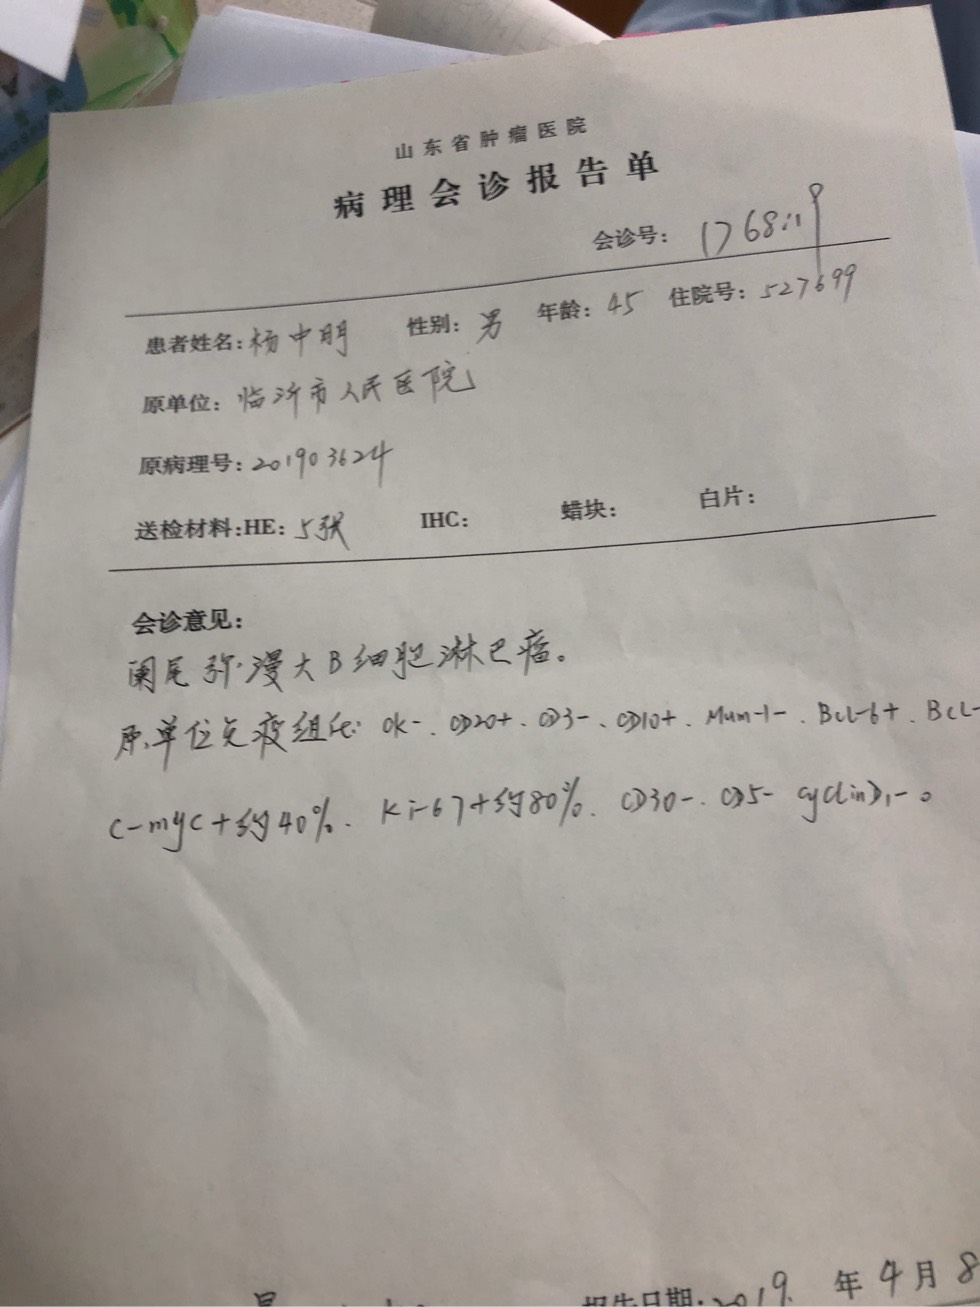 山东省肿瘤医院
病理会诊报告单
会诊号：
患者姓名：杨中明 性别：男 年龄：45 住院号：527699
原单位：临沂市人民医院
原病理号：201903624
送检材料：HE：5张 IHC： 蜡块： 白片：
会诊意见：
阑尾弥漫大B细胞淋巴瘤。
原单位免疫组化：CK-、CD20+、CD3-、CD10+、Mum-1-、Bcl-6+、Bcl-
C-myc+约40%、Ki-67+约80%、CD30-、CD5- cyclinD1-。
报告日期：2019年4月8